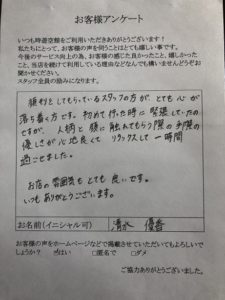 お客様アンケート
いつも時遊空館をご利用いただきありがとうございます！
私たちにとって、お客様の声を伺うことはとても嬉しい事です。
今後のサービス向上の為、お客様の感じた良かったこと、嬉しかったこと、当店を続けて利用している理由などなんでも構いませんぞうお聞かせください。
スタッフ全員の励みになります。
頼りとしてもらっているスタッフの方が、とても心が
落ち着く方です。初めて行った時に緊張していたの
ですが、人柄と顔に触れてもらう際の手際の
優しさが心地良くて リラックスして一時間
過ごせました。
お店の雰囲気もとても良いです。
いつもありがとうございます。
お名前(イニシャル可) 清水 優香
お客様の声をホームページなどで掲載させていただいてもよろしいで
しょうか？ ☑はい □匿名で □ダメ
ご協力ありがとうございました。